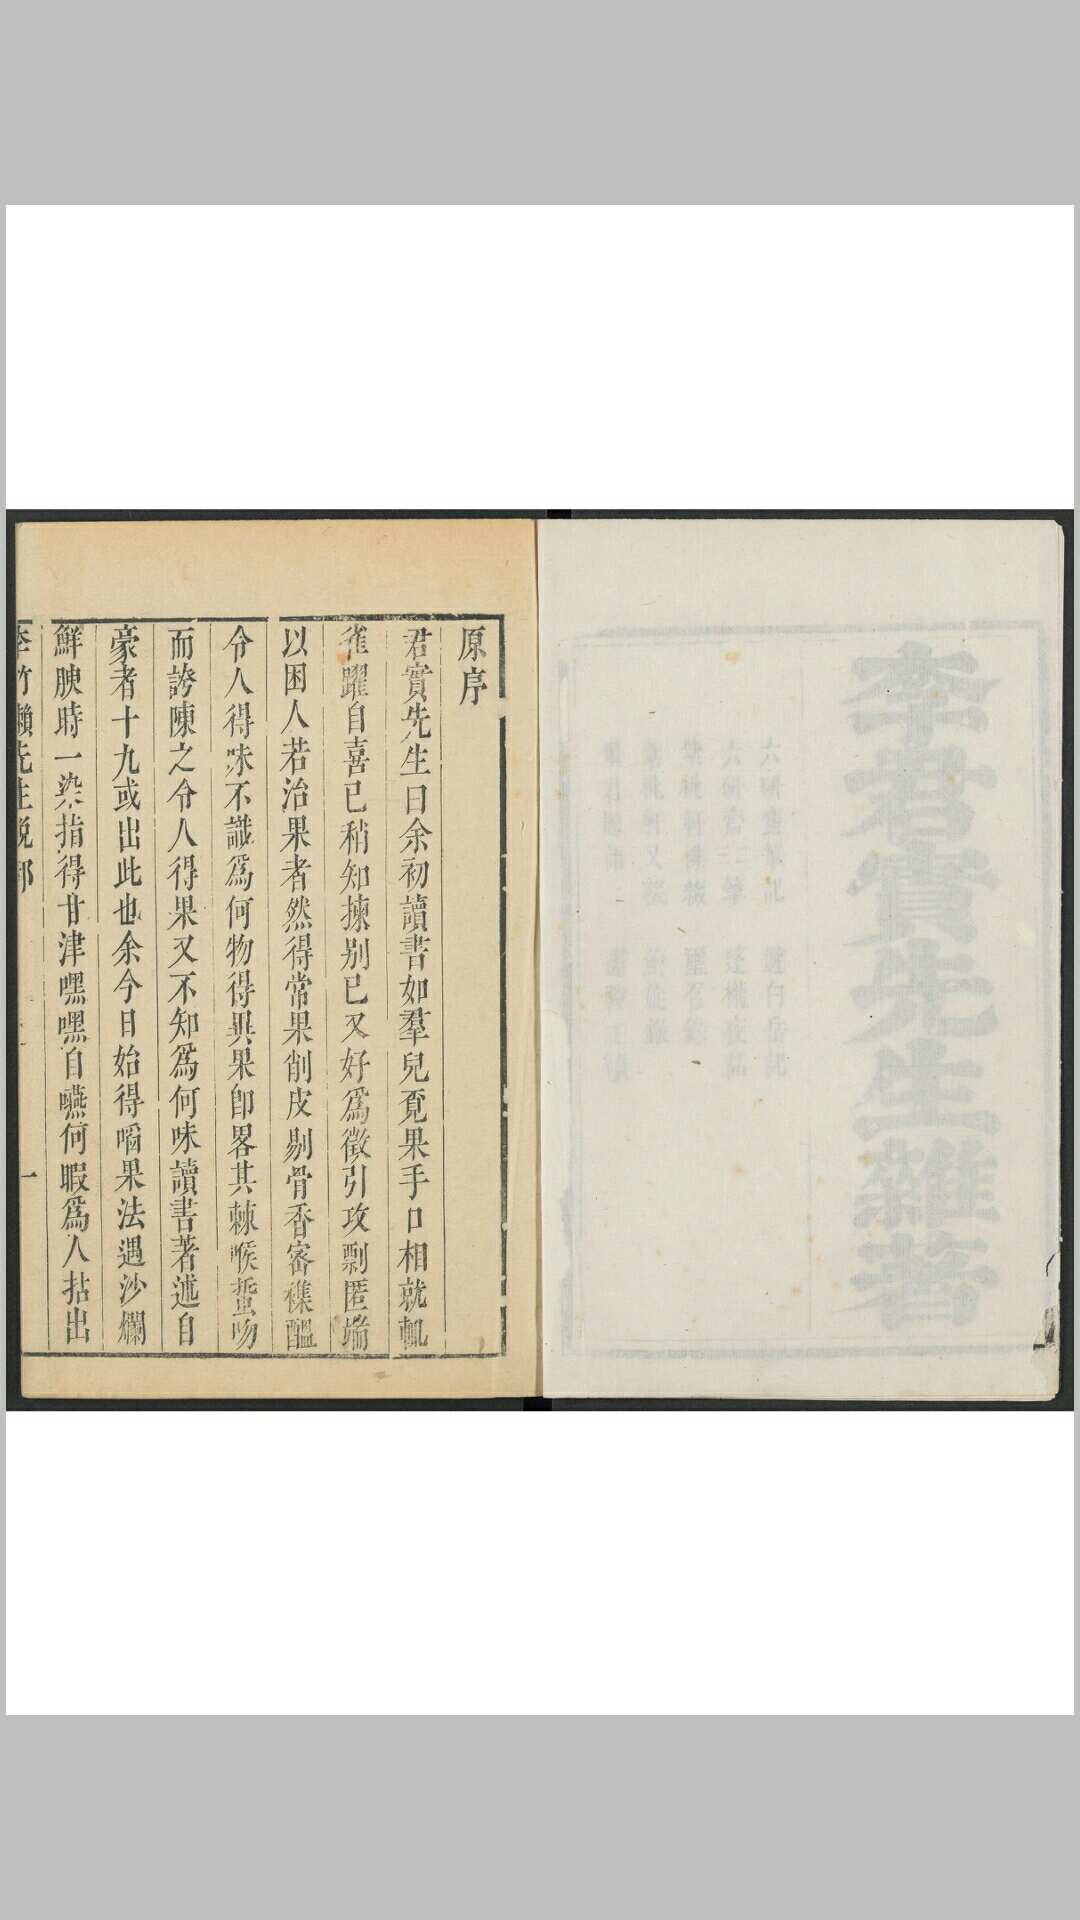 李君實先生雜著
原序
君實先生曰余初讀書如羣兒覔果手口相就輒
雀躍自喜已稍知揀别已又好爲徵引攻剽匿端
以困人若治果者然得常果削皮剔骨香審襍醞
令人得味不識爲何物得異果卽畧其棘喉蜇吻
而誇陳之令人得果又不知爲何味讀書著述自
豪者十九或出此也余今日始得嚼果法遇沙爛
鮮腴時一染指得甘津嘿嘿自嚥何暇爲人拈出
李竹嬾先生說部 一